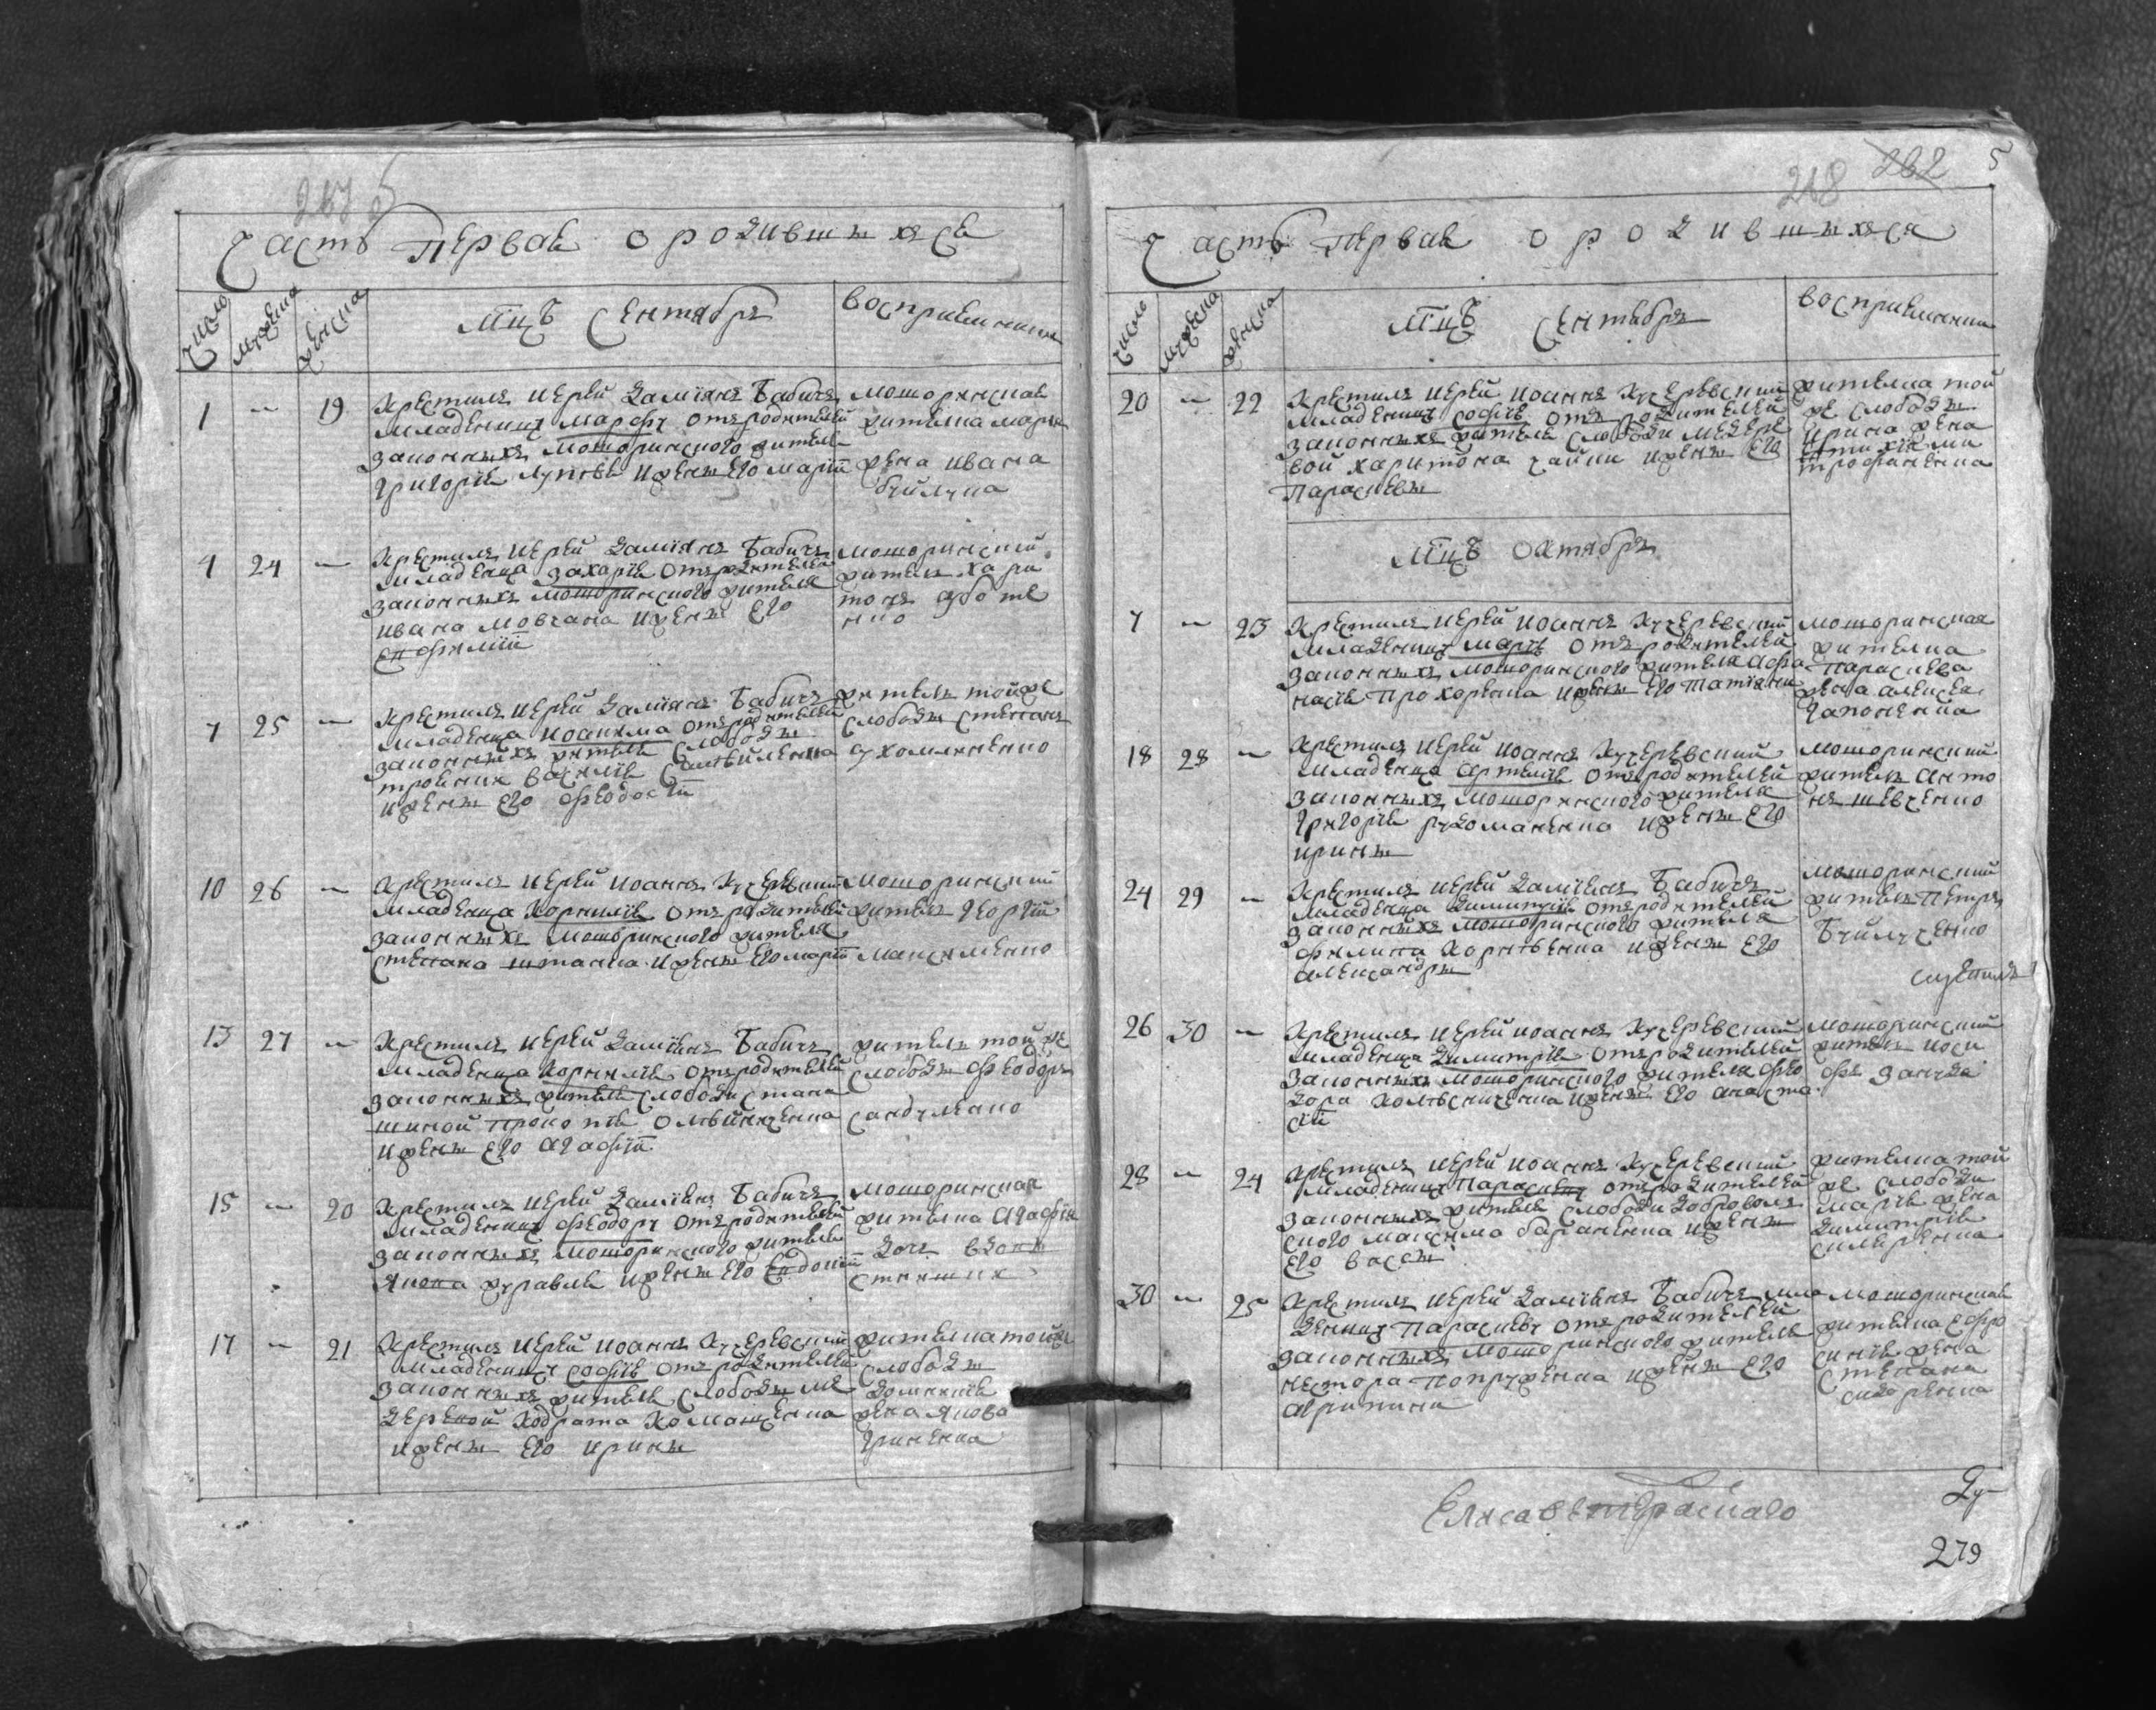 Часть Первая о родившихся
число
мужеска
женска
Мцъ Сентябрь
восприемники
1 — 19
Крестилъ иерей Даміянъ Бабичъ
младеницу Марфу отъ родителей
законныхъ Моторинского жителя
Григорія Лупова и жены его Маріи
Моторинская
жителка Марія
жена ивана
4 24 —
Крестилъ иерей Даміянъ Бабичъ
младенца Захарія отъ родителей
законныхъ Моторинского жителя
ивана Мовчана и жены его
Евфиміи
Моторинскій
житель Хари
тонъ
7 25 —
Крестилъ иерей Даміянъ Бабичъ
младенца иоакима отъ родителей
законныхъ жителя слободы
василія
и жены его Феодосіи
житель той же
слободы Стефанъ
10 26 —
Крестилъ иерей иоаннъ Кучеревскій
младенца Корнилія отъ родителей
законныхъ Моторинского жителя
Степана Штанка и жены его Маріи
Моторинскій
житель Георгій
Максименко
13 27 —
Крестилъ иерей Даміянъ Бабичъ
младенца Корнилія отъ родителей
законныхъ жителя слободы Стани
шиной Прокопія Олейниченка
и жены его Агафіи
житель той же
слободы Феодоръ
Сандуленко
15 — 20
Крестилъ иерей Даміянъ Бабичъ
младеницу Феодору отъ родителей
законныхъ Моторинского жителя
Якова Журавля и жены его Евдокіи
Моторинская
жителка Агафія
дочь вдовы
17 — 21
Крестилъ иерей иоаннъ Кучеревскій
младеницу Софію отъ родителей
законныхъ жителя слободы Ме
деровой Кодрата Комащенка
и жены его ирины
жителка той же
слободы
Домникія
жена Якова
Гриненка
218 262 5
Часть Первая о родившихся
число
мужеска
женска
Мцъ Сентябрь
восприемники
20 — 22
Крестилъ иерей иоаннъ Кучеревскій
младеницу Софію отъ родителей
законныхъ жителя слободы Медеро
вой Харитона Чайки и жены его
Параскевы
жителка той
же слободы
ирина жена
Евтихія Ми
трофаненка
Мцъ Октябрь
7 — 23
Крестилъ иерей иоаннъ Кучеревскій
младеницу Марію отъ родителей
законныхъ Моторинского жителя Афа
насія Прохоренка и жены его Татіяны
Моторинская
жителка
Параскева
жена алексея
Гапоненка
18 28 —
Крестилъ иерей иоаннъ Кучеревскій
младенца Артемія отъ родителей
законныхъ Моторинского жителя
Григорія Рудоманенка и жены его
ирины
Моторинскій
житель Анто
нъ Шевченко
24 29 —
Крестилъ иерей Даміянъ Бабичъ
младенца Димитрія отъ родителей
законныхъ Моторинского жителя
Филипа Корніенка и жены его
александры
Моторинскій
житель Петръ
26 30 —
Крестилъ иерей иоаннъ Кучеревскій
младенца Димитрія отъ родителей
законныхъ Моторинского жителя Фео
дора Колесниченка и жены его анаста
сіи
Моторинскій
житель иоси
фъ Зануда
28 — 24
Крестилъ иерей иоаннъ Кучеревскій
младеницу Параскеву отъ родителей
законныхъ жителя слободы Доброволя
ского Максима Бараненка и жены
его вассы
жителка той
же слободы
Марія жена
Димитрія
30 — 25
Крестилъ иерей Даміянъ Бабичъ мла
деницу Параскеву отъ родителей
законныхъ Моторинского жителя
нестора Попруженка и жены его
Агрипины
Моторинская
жителка Евфро
синія жена
Степана
Сидоренка
Елисаветградскаго
Ду
279